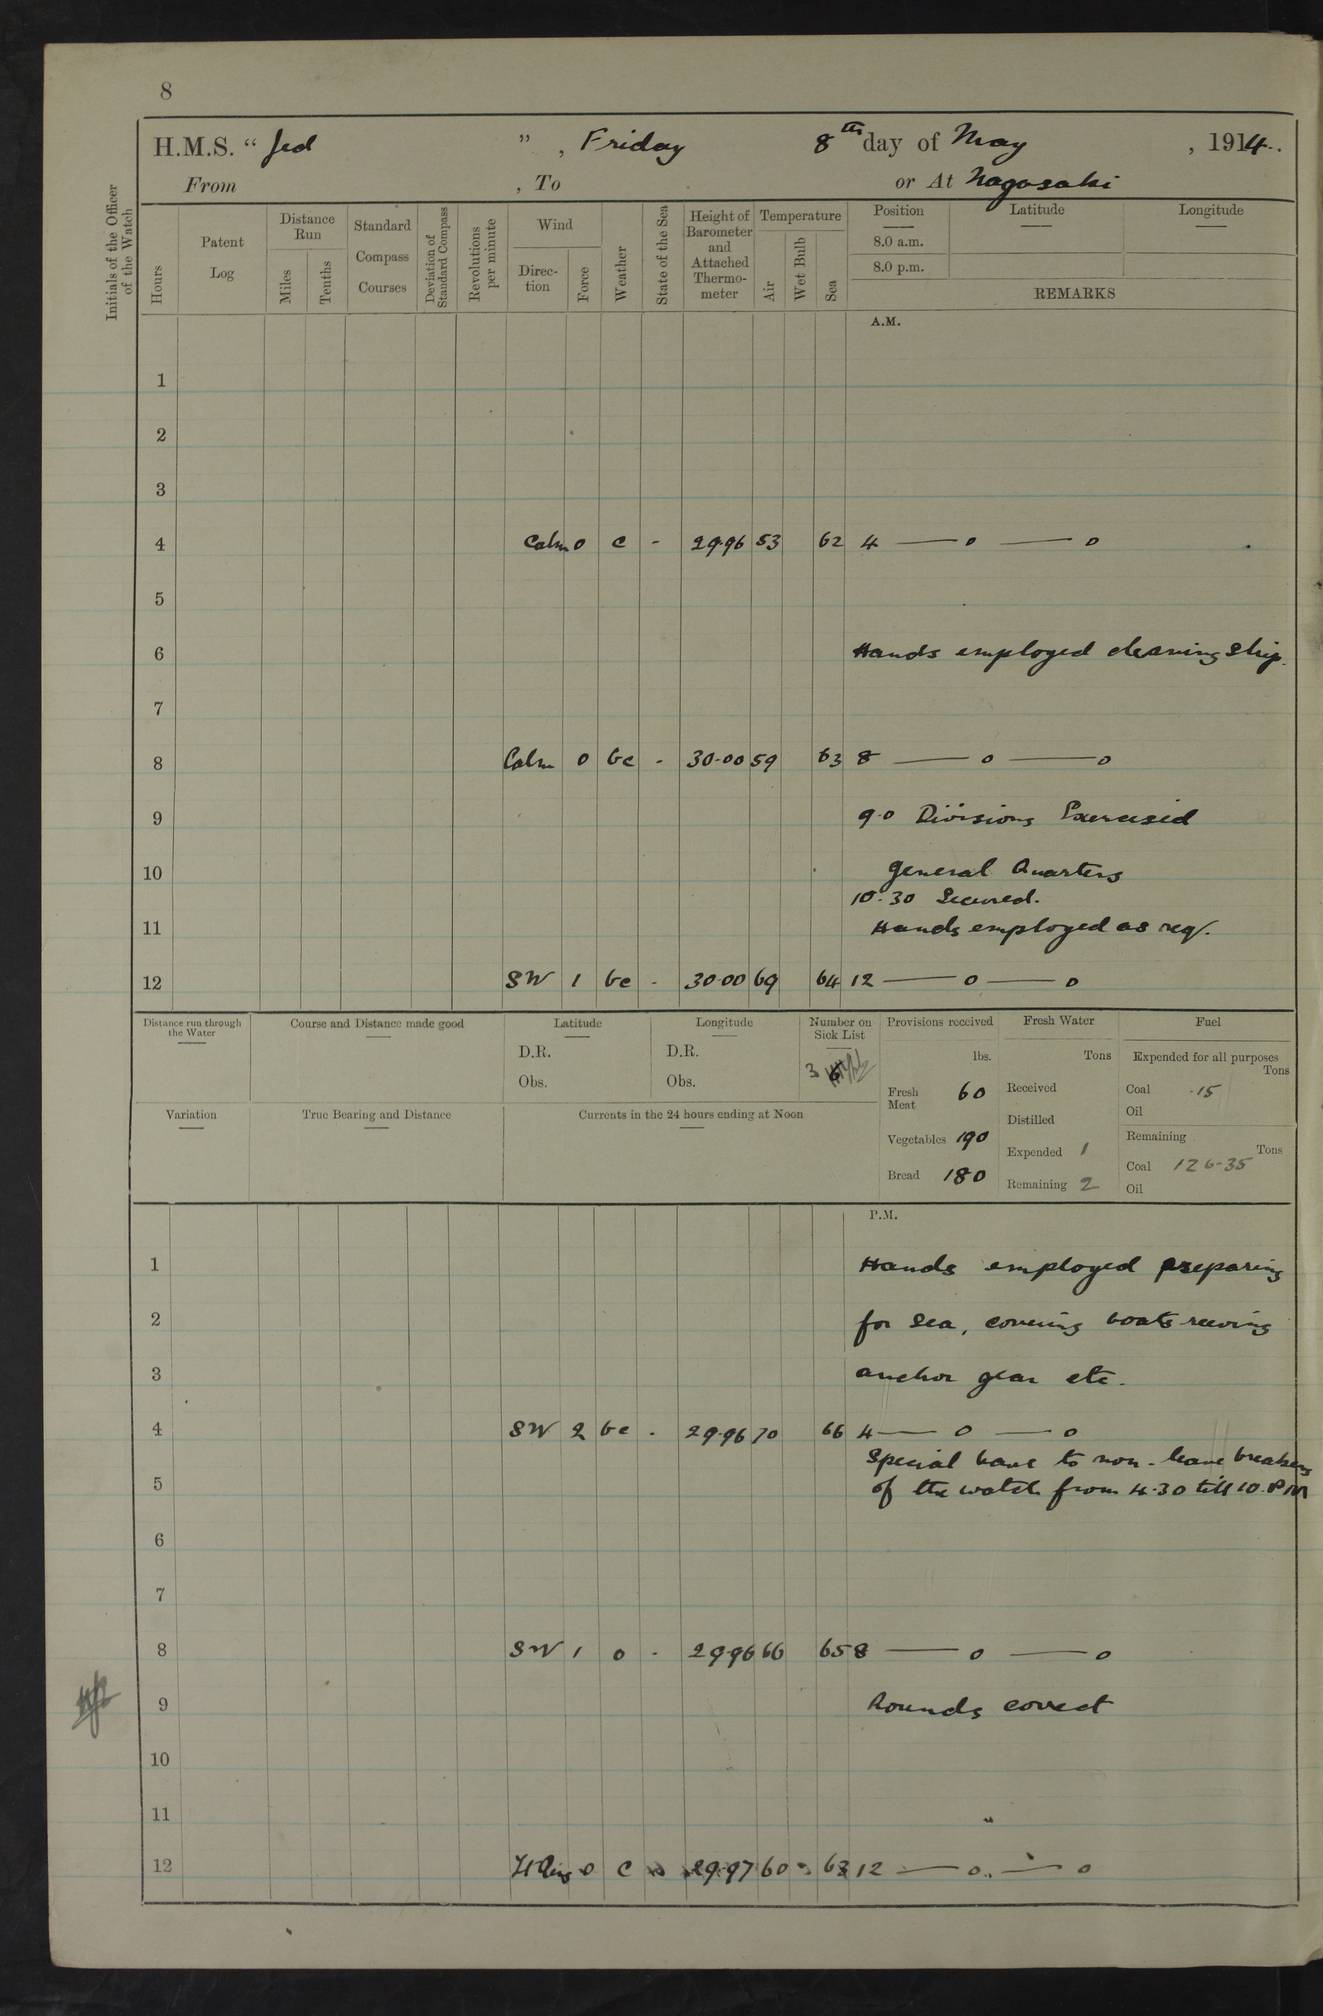 8
H.M.S. “ Jed ” , Friday 8th day of May , 1914.
From , To or At Nagasaki
Initials of the Officer of the Watch
Hours
Patent Log
Distance Run
Miles
Tenths
Standard Compass Courses
Deviation of Standard Compass
Revolutions per minute
Wind
Direction
Force
Weather
State of the Sea
Height of Barometer and Attached Thermometer
Temperature
Air
Wet Bulb
Sea
Position
Latitude
Longitude
8.0 a.m.
8.0 p.m.
REMARKS
A.M.
1
2
3
4 Calm 0 c - 29.96 53 62 4 — o — o
5
6 Hands employed cleaning ship.
7
8 Calm 0 bc - 30.00 59 63 8 — o — o
9 9.0 Divisions Exercised
10 General Quarters
10.30 Secured.
11 Hands employed as req.
12 SW 1 bc - 30.00 69 64 12 — o — o
Distance run through the Water
Course and Distance made good
Latitude
D.R.
Obs.
Longitude
D.R.
Obs.
Number on Sick List
3
Provisions received
lbs.
Fresh Meat 60
Vegetables 190
Bread 180
Fresh Water
Tons
Received
Distilled
Expended 1
Remaining 2
Fuel
Expended for all purposes
Tons
Coal .15
Oil
Remaining
Tons
Coal 126.35
Oil
Variation
True Bearing and Distance
Currents in the 24 hours ending at Noon
P.M.
1 Hands employed preparing
2 for sea, covering boats reeving
3 anchor gear etc.
4 SW 2 bc - 29.96 70 66 4 — o — o
Special leave to non-leave breakers
5 of the watch from 4.30 till 10. PM
6
7
8 SW 1 o - 29.96 66 65 8 — o — o
9 Rounds correct
10
11
12 0 c 29.97 60 63 12 — o — o